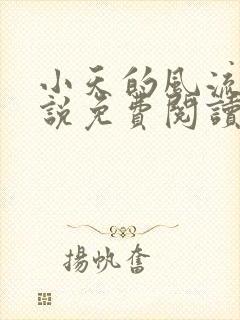 小天的風流
說免費閱讀
揚帆奮